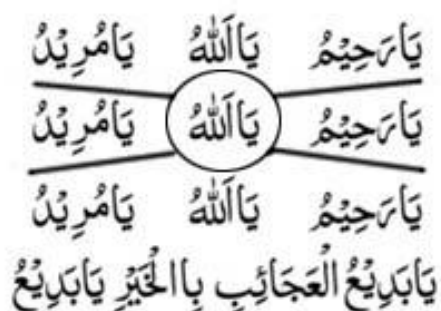 يَارَحِيْمُ يَااَللهُ يَامُرِيْدُ
يَارَحِيْمُ يَااَللهُ يَامُرِيْدُ
يَارَحِيْمُ يَااَللهُ يَامُرِيْدُ
يَابَدِيْعُ الْعَجَائِبِ بِاالْخَيْرِ يَابَدِيْعُ